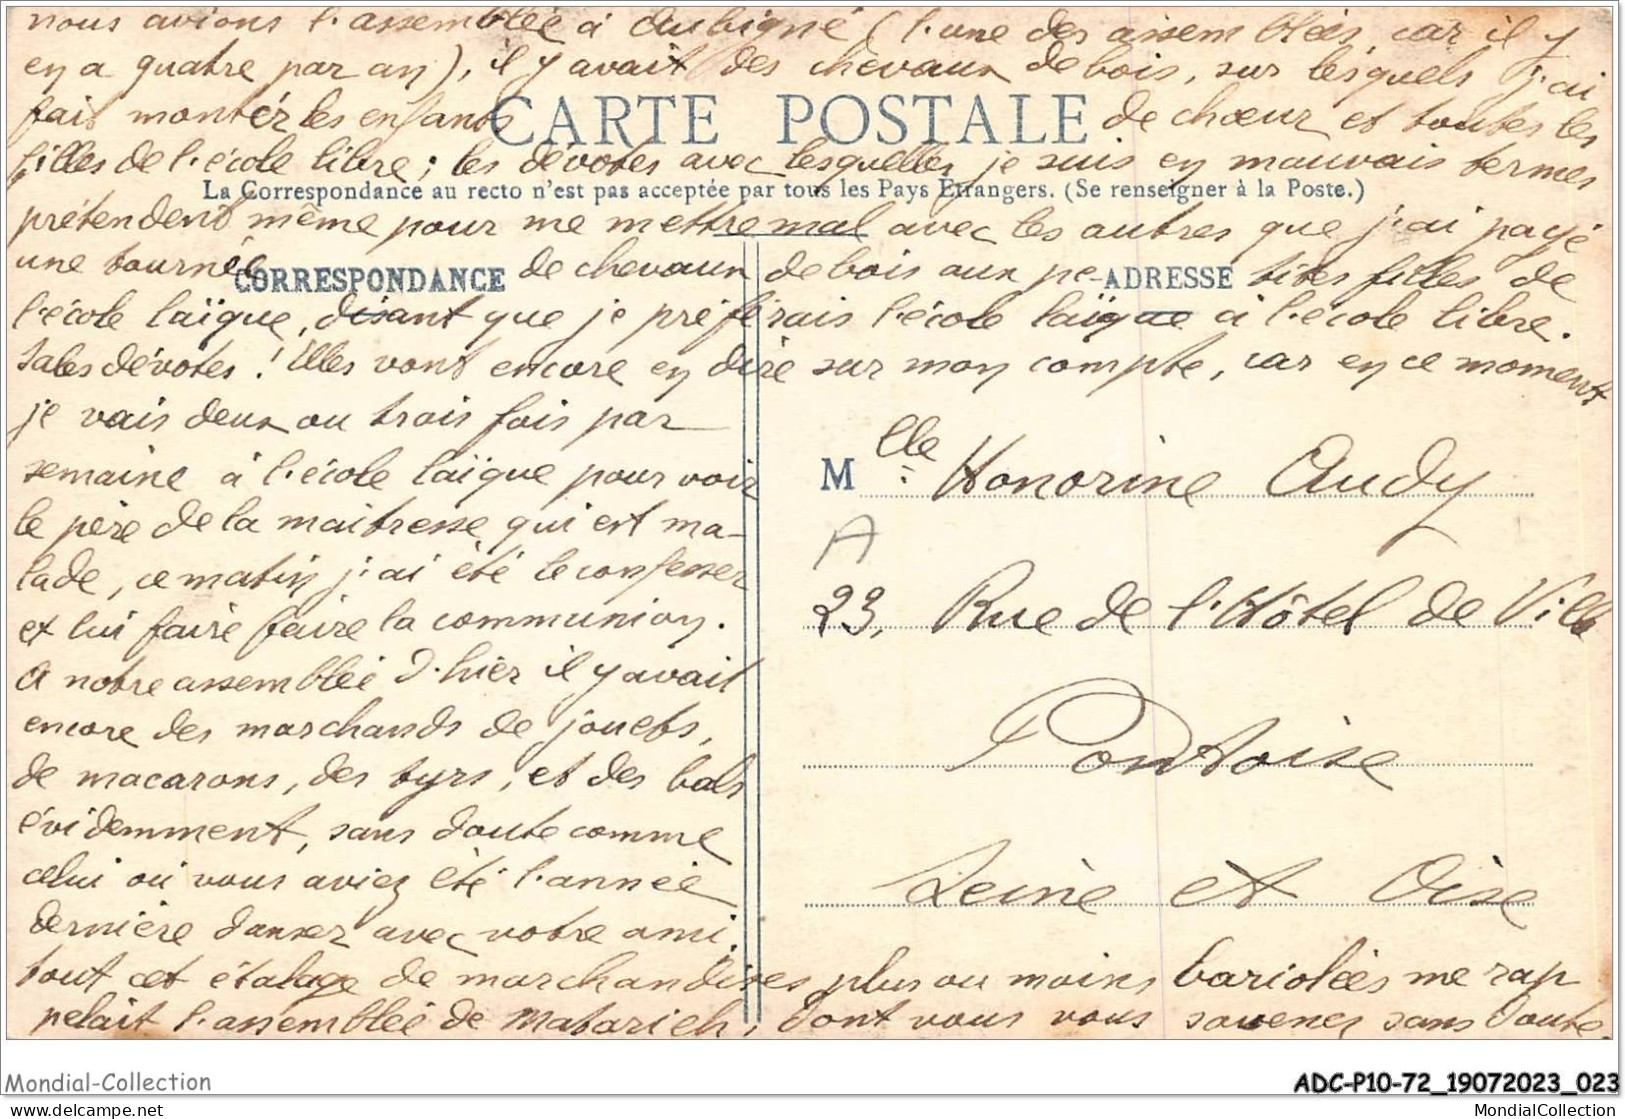 nous avions l'assemblée à Aubigné (l'une des assemblées, car il y
en a quatre par an), il y avait des chevaux de bois, sur lesquels j'ai
fait monter les enfants de chœur et toutes les
CARTE POSTALE
filles de l'école libre ; les dévotes avec lesquelles je suis en mauvais termes
La Correspondance au recto n'est pas acceptée par tous les Pays Étrangers. (Se renseigner à la Poste.)
prétendent même pour me mettre mal avec les autres que j'ai payé
une tournée de chevaux de bois aux pe-tites filles de
CORRESPONDANCE
ADRESSE
l'école laïque, disant que je préférais l'école laïque à l'école libre.
Sales dévotes ! Elles vont encore en dire sur mon compte, car en ce moment
je vais deux ou trois fois par
semaine à l'école laïque pour voir
le père de la maitresse qui est ma-
lade, ce matin j'ai été le confesser
et lui faire faire la communion.
A notre assemblée d'hier il y avait
encore des marchands de jouets,
de macarons, des tyrs, et des bals
évidemment, sans doute comme
celui où vous aviez été l'année
dernière danser avec votre ami.
tout cet étalage de marchandises plus ou moins bariolées me rap
pelait l'assemblée de Matarieh, dont vous vous souvenez sans doute.
Mlle Honorine Audy
A
23, Rue de l'Hôtel de Ville
Pontoise
Seine et Oise
Mondial-Collection
ADC-P10-72_19072023_023
www.delcampe.net
MondialCollection